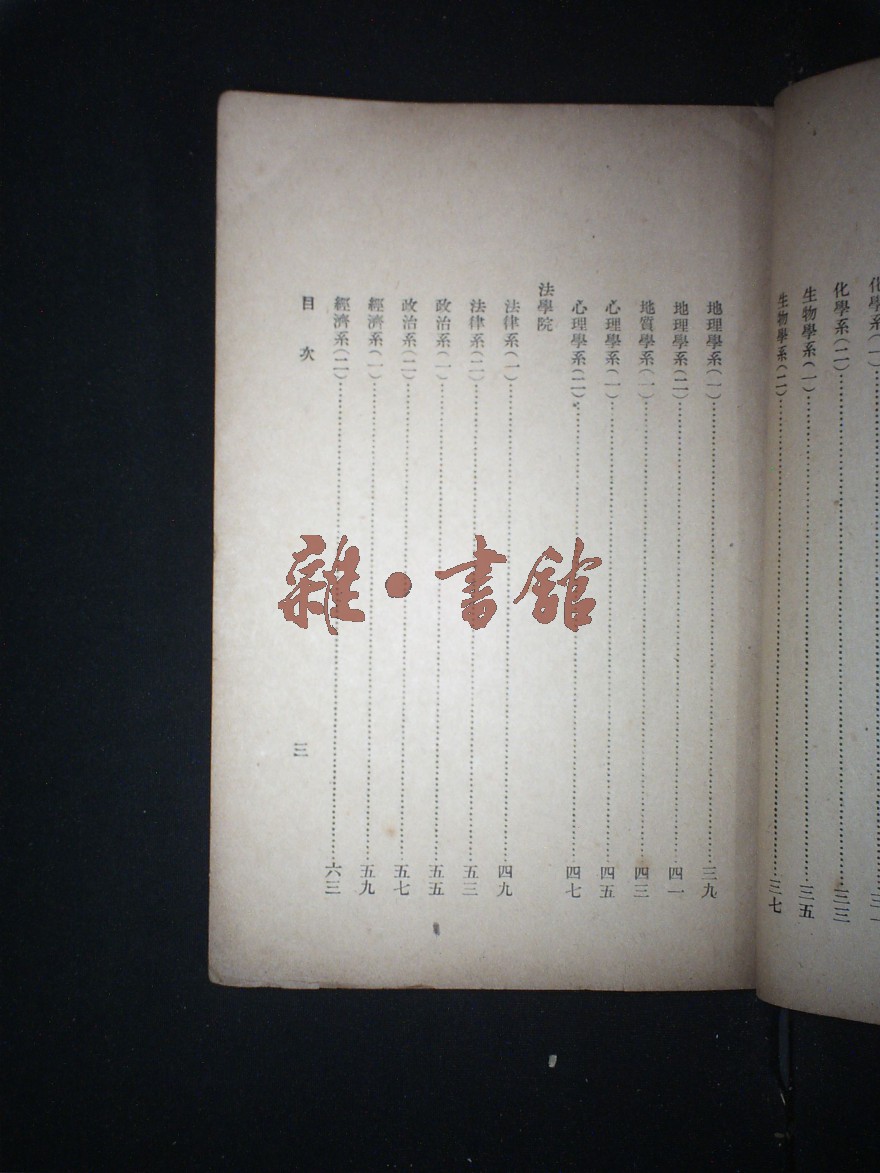 化學系(一)
化學系(二)……三三
生物學系(一)……三五
生物學系(二)……三七
地理學系(一)……三九
地理學系(二)……四一
地質學系(一)……四三
心理學系(一)……四五
心理學系(二)……四七
法學院
法律系(一)……四九
法律系(二)……五三
政治系(一)……五五
政治系(二)……五七
經濟系(一)……五九
經濟系(二)……六三
目次
三
雜·書館